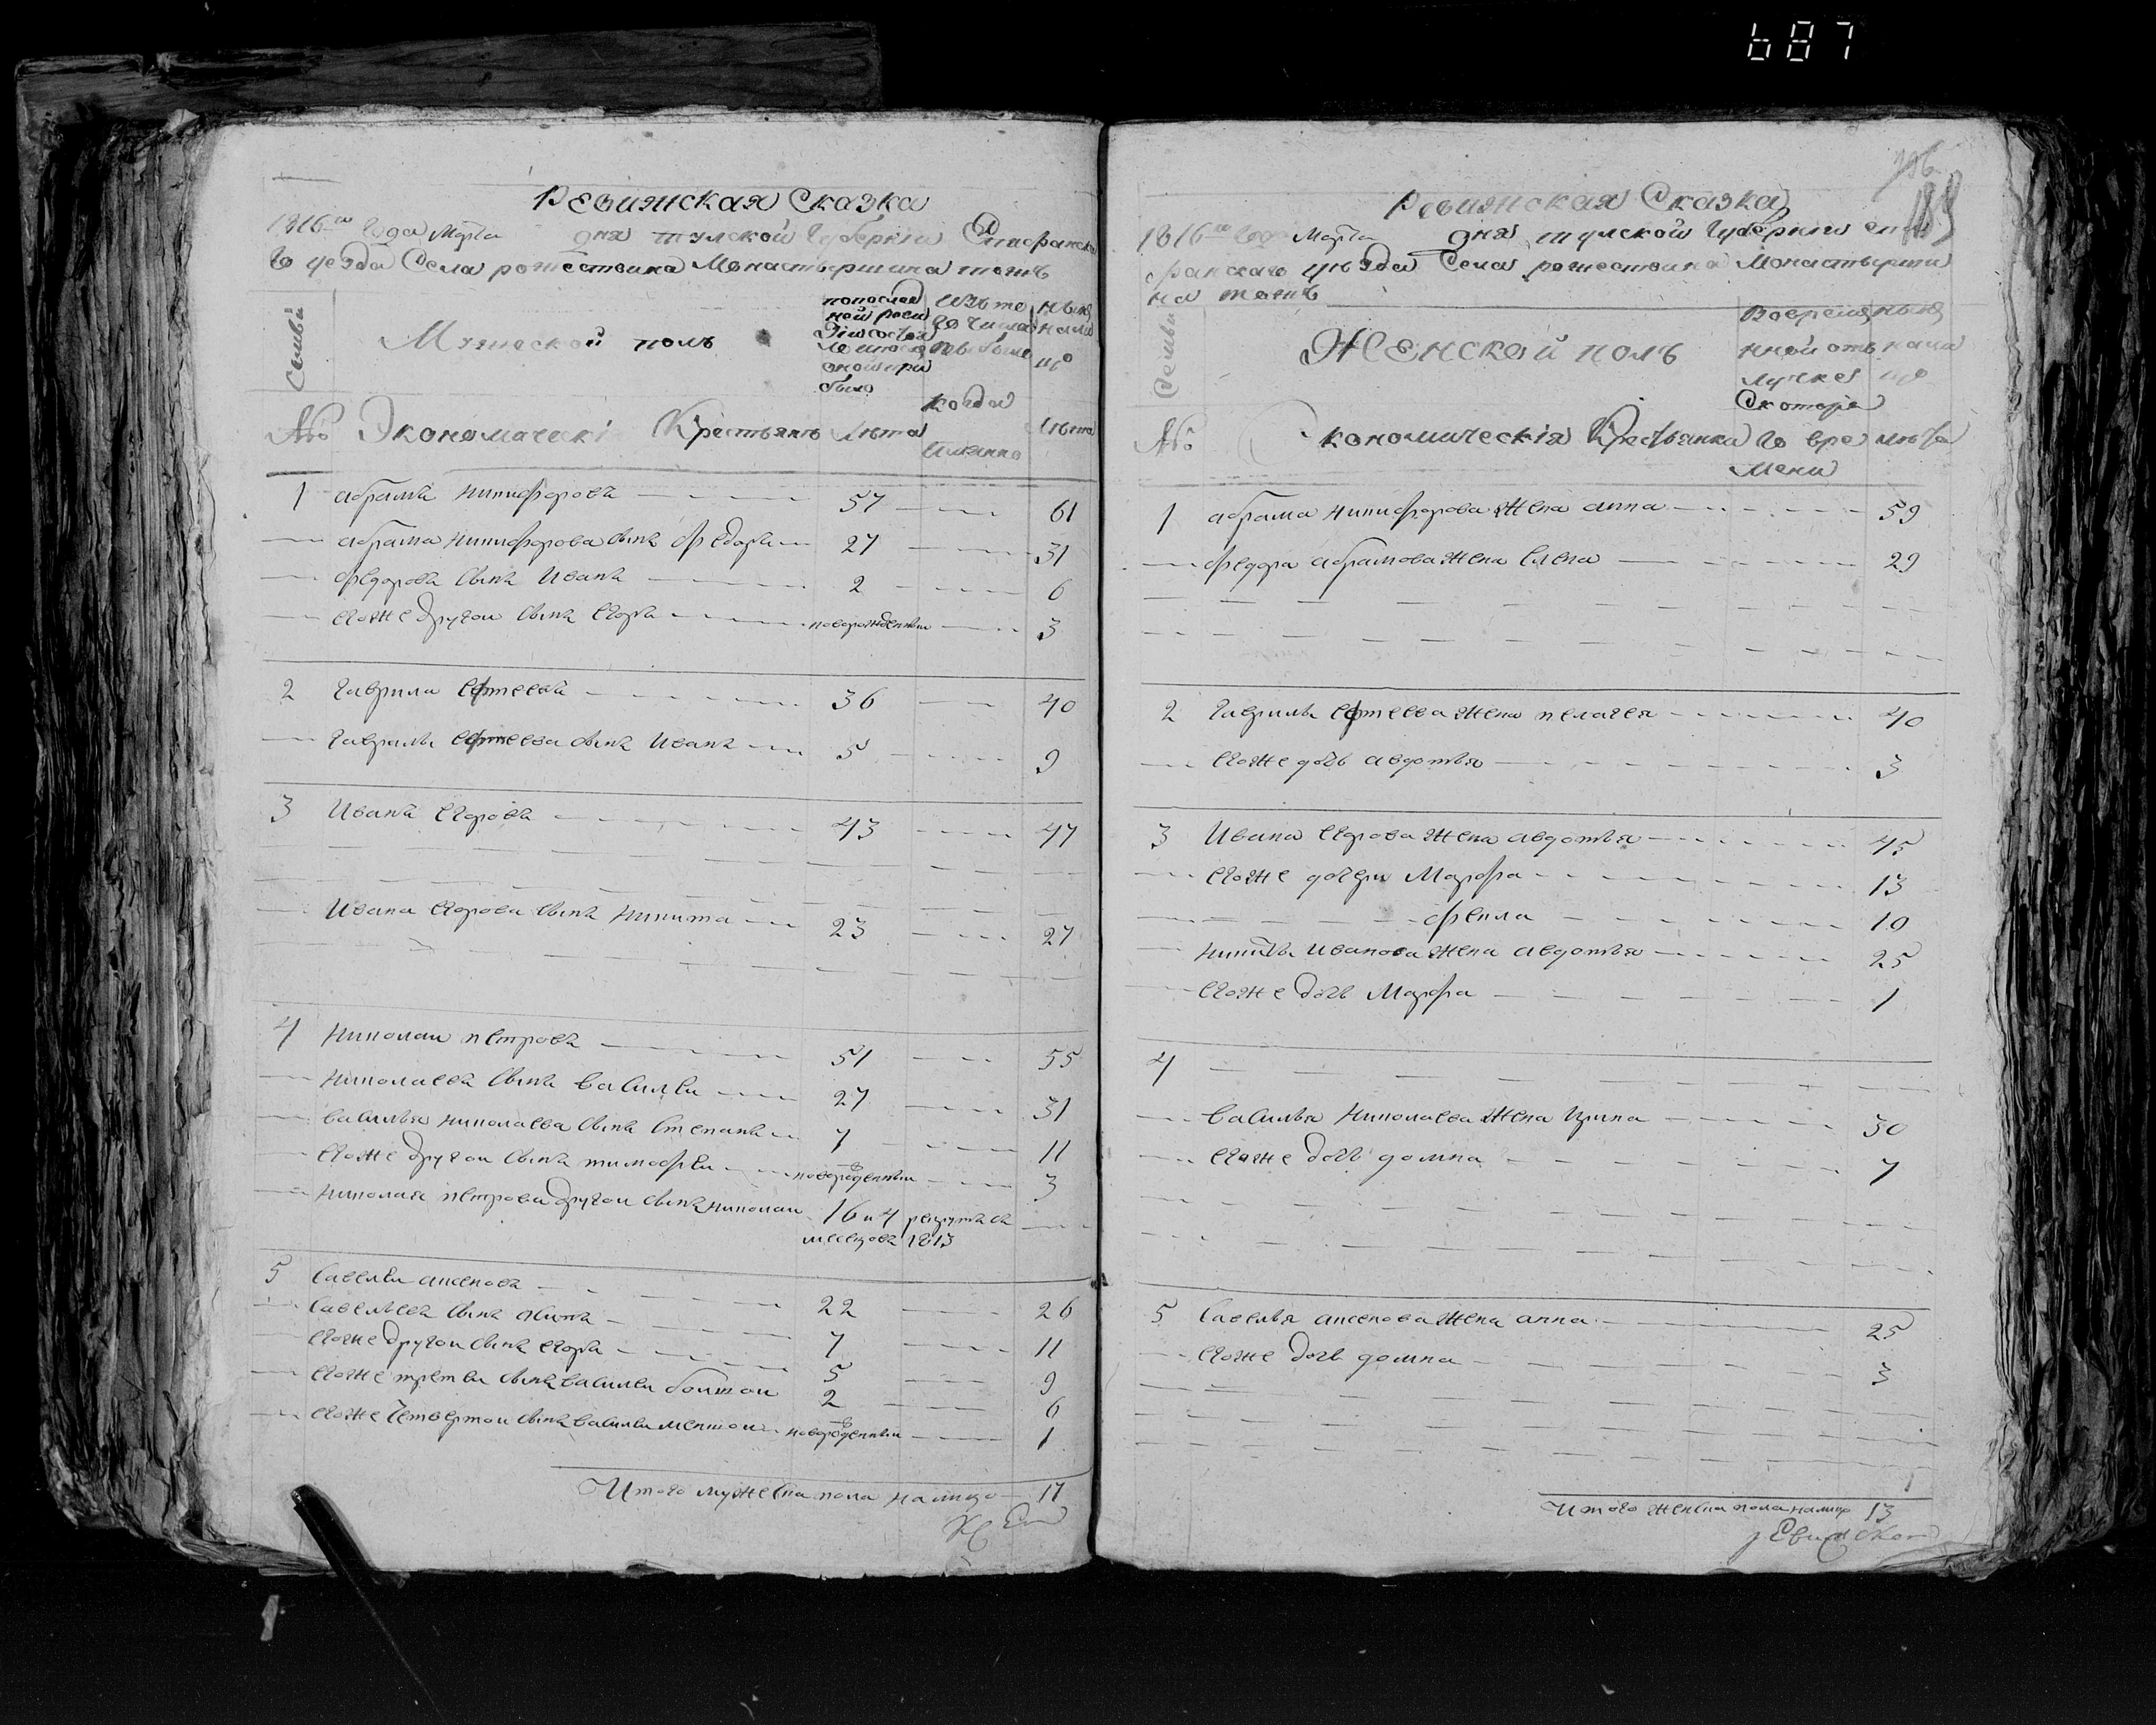 687
Ревижская Сказка
1816го Года Марта дня тулской Губернии Епифанска
го уезда Села рожествина Монастыршина тожъ
Семьи
Мужеской полъ
по последней ревизии состояло и после оной прибыло
Изъ того числа выбыло
ныне на лицо
когда именно
№ Экономически Крестьянъ Лета Лета
1 абрамъ никифоровъ 57 61
абрама никифорова сынъ федоръ 27 31
федоровъ сынъ Иванъ 2 6
Егоже другои сынъ Егоръ новорожденныи 3
2 Гаврила Ефтеевъ 36 40
Гаврилы Ефтеева сынъ Иванъ 5 9
3 Иванъ Егоровъ 43 47
Ивана Егорова сынъ никита 23 27
4 николаи петровъ 51 55
николаевъ сынъ василеи 27 31
василья николаева сынъ степанъ 7 11
Егоже другои сынъ тимофеи новорожденныи 3
николая петрова другои сынъ николаи 16 и 4 рекрутъ въ
месецовъ 1813
5 савелеи аксеновъ 22 26
савельевъ сынъ 7 11
Егоже другои сынъ Егоръ 5 9
Егоже третеи сынъ василеи болшои 2 6
Егоже четвертои сынъ василеи меншои новорожденныи 1
Итого мужеска пола налицо 17
196
189
Ревижская Сказка
1816го года Марта дня тулской Губернии епи
фанскаго уезда Села рожествина Монастырши
на тожъ
Семьи
Женской полъ
Во временной отлучке
С котораго времени
ныне на лицо
№ Экономическия Крестьянки лета
1 абрама никифорова жена анна 59
федора абрамова жена Елена 29
2 Гаврилы Ефтеева жена пелагея 40
Егоже дочь авдотья 3
3 Ивана Егорова жена авдотья 45
Егоже дочери Марфа 13
фекла 10
никиты иванова жена авдотья 25
Егоже дочь Марфа 1
4
василья николаева жена Ирина 30
Егоже дочь домна 7
5 савелья аксенова жена анна 25
Егоже дочь домна 3
Итого женска пола налицо 13